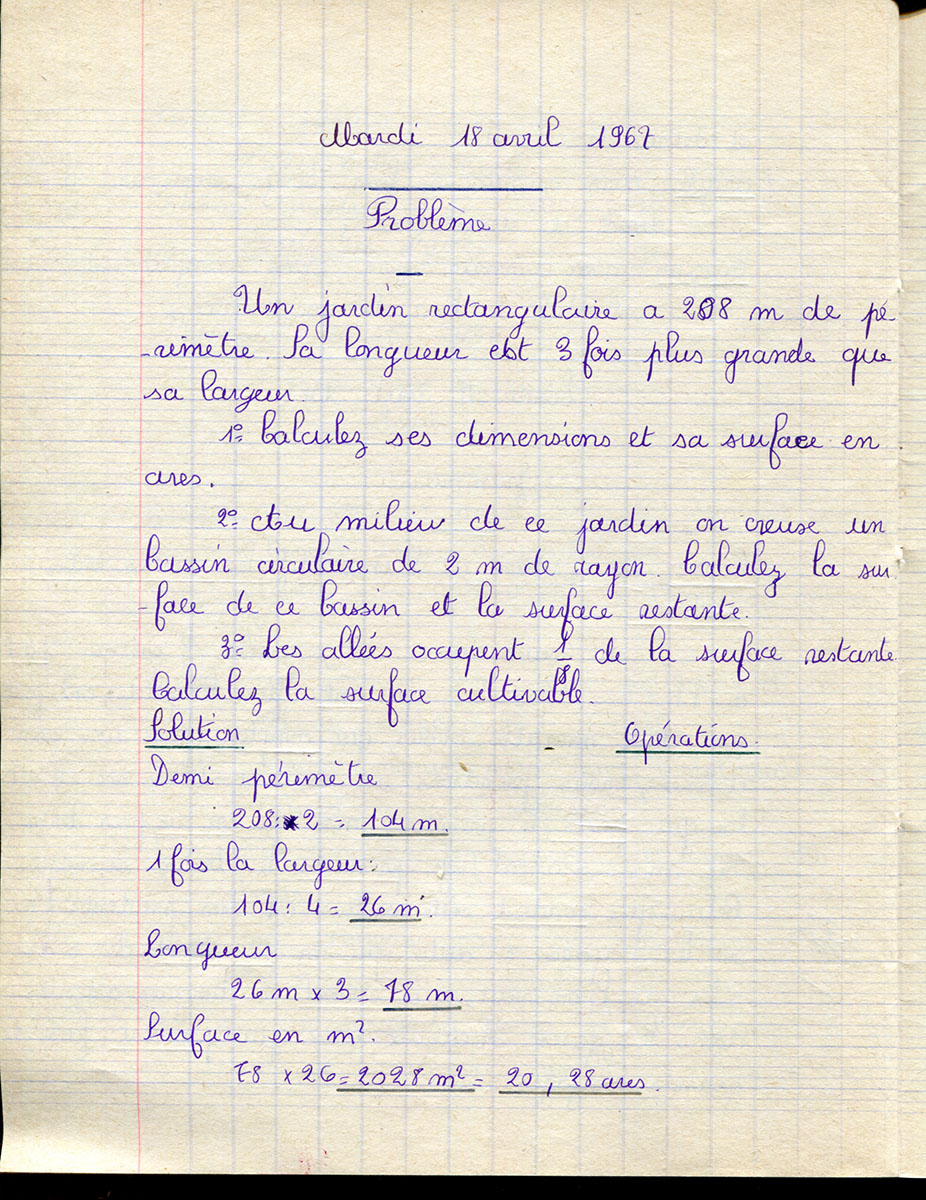 Mardi 18 avril 1967
Problème
Un jardin rectangulaire a 208 m de pé-
-rimètre. Sa longueur est 3 fois plus grande que
sa largeur.
1º Calculez ses dimensions et sa surface en
ares.
2º Au milieu de ce jardin on creuse un
bassin circulaire de 2 m de rayon. Calculez la sur
-face de ce bassin et la surface restante.
3º Les alleés occupent 1/8 de la surface restante
Calculez la surface cultivable.
Solution Opérations.
Demi périmètre
208 : 2 = 104 m.
1 fois la largeur :
104 : 4 = 26 m.
Longueur
26 m x 3 = 78 m.
Surface en m².
78 x 26 = 2028 m² = 20, 28 ares.